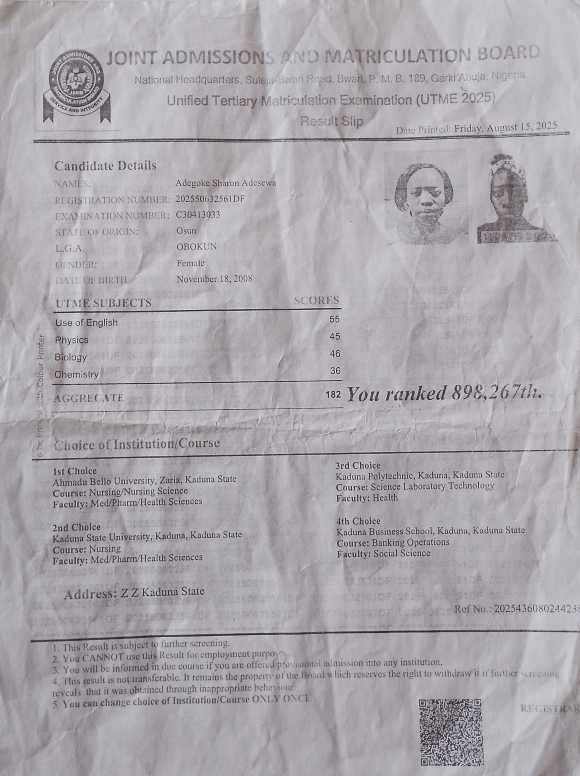 JOINT ADMISSIONS AND MATRICULATION BOARD
National Headquarters, Suleja-Bwari Road, Bwari, P. M. B. 189, Garki Abuja, Nigeria
Unified Tertiary Matriculation Examination (UTME 2025)
Result Slip
Date Printed: Friday, August 15, 2025
SERVICE AND INTEGRITY
Candidate Details
NAMES: Adegoke Sharon Adesewa
REGISTRATION NUMBER: 202550632561DF
EXAMINATION NUMBER: C30413033
STATE OF ORIGIN: Osun
L.G.A. OBOKUN
GENDER: Female
DATE OF BIRTH: November 18, 2008
UTME SUBJECTS SCORES
Use of English 55
Physics 45
Biology 46
Chemistry 36
AGGREGATE 182
You ranked 898,267th.
Choice of Institution/Course
1st Choice
Ahmadu Bello University, Zaria, Kaduna State
Course: Nursing/Nursing Science
Faculty: Med/Pharm/Health Sciences
2nd Choice
Kaduna State University, Kaduna, Kaduna State
Course: Nursing
Faculty: Med/Pharm/Health Sciences
3rd Choice
Kaduna Polytechnic, Kaduna, Kaduna State
Course: Science Laboratory Technology
Faculty: Health
4th Choice
Kaduna Business School, Kaduna, Kaduna State
Course: Banking Operations
Faculty: Social Science
Address: Z Z Kaduna State
Ref No.: 202543608024423
1. This Result is subject to further screening.
2. You CANNOT use this Result for employment purpo
3. You will be informed in due course if you are offered provisional admission into any institution.
4. This result is not transferable. It remains the property of the Board which reserves the right to withdraw it if further screening
reveals that it was obtained through inappropriate behaviour
5. You can change choice of Institution/Course ONLY ONCE
REGISTRAR